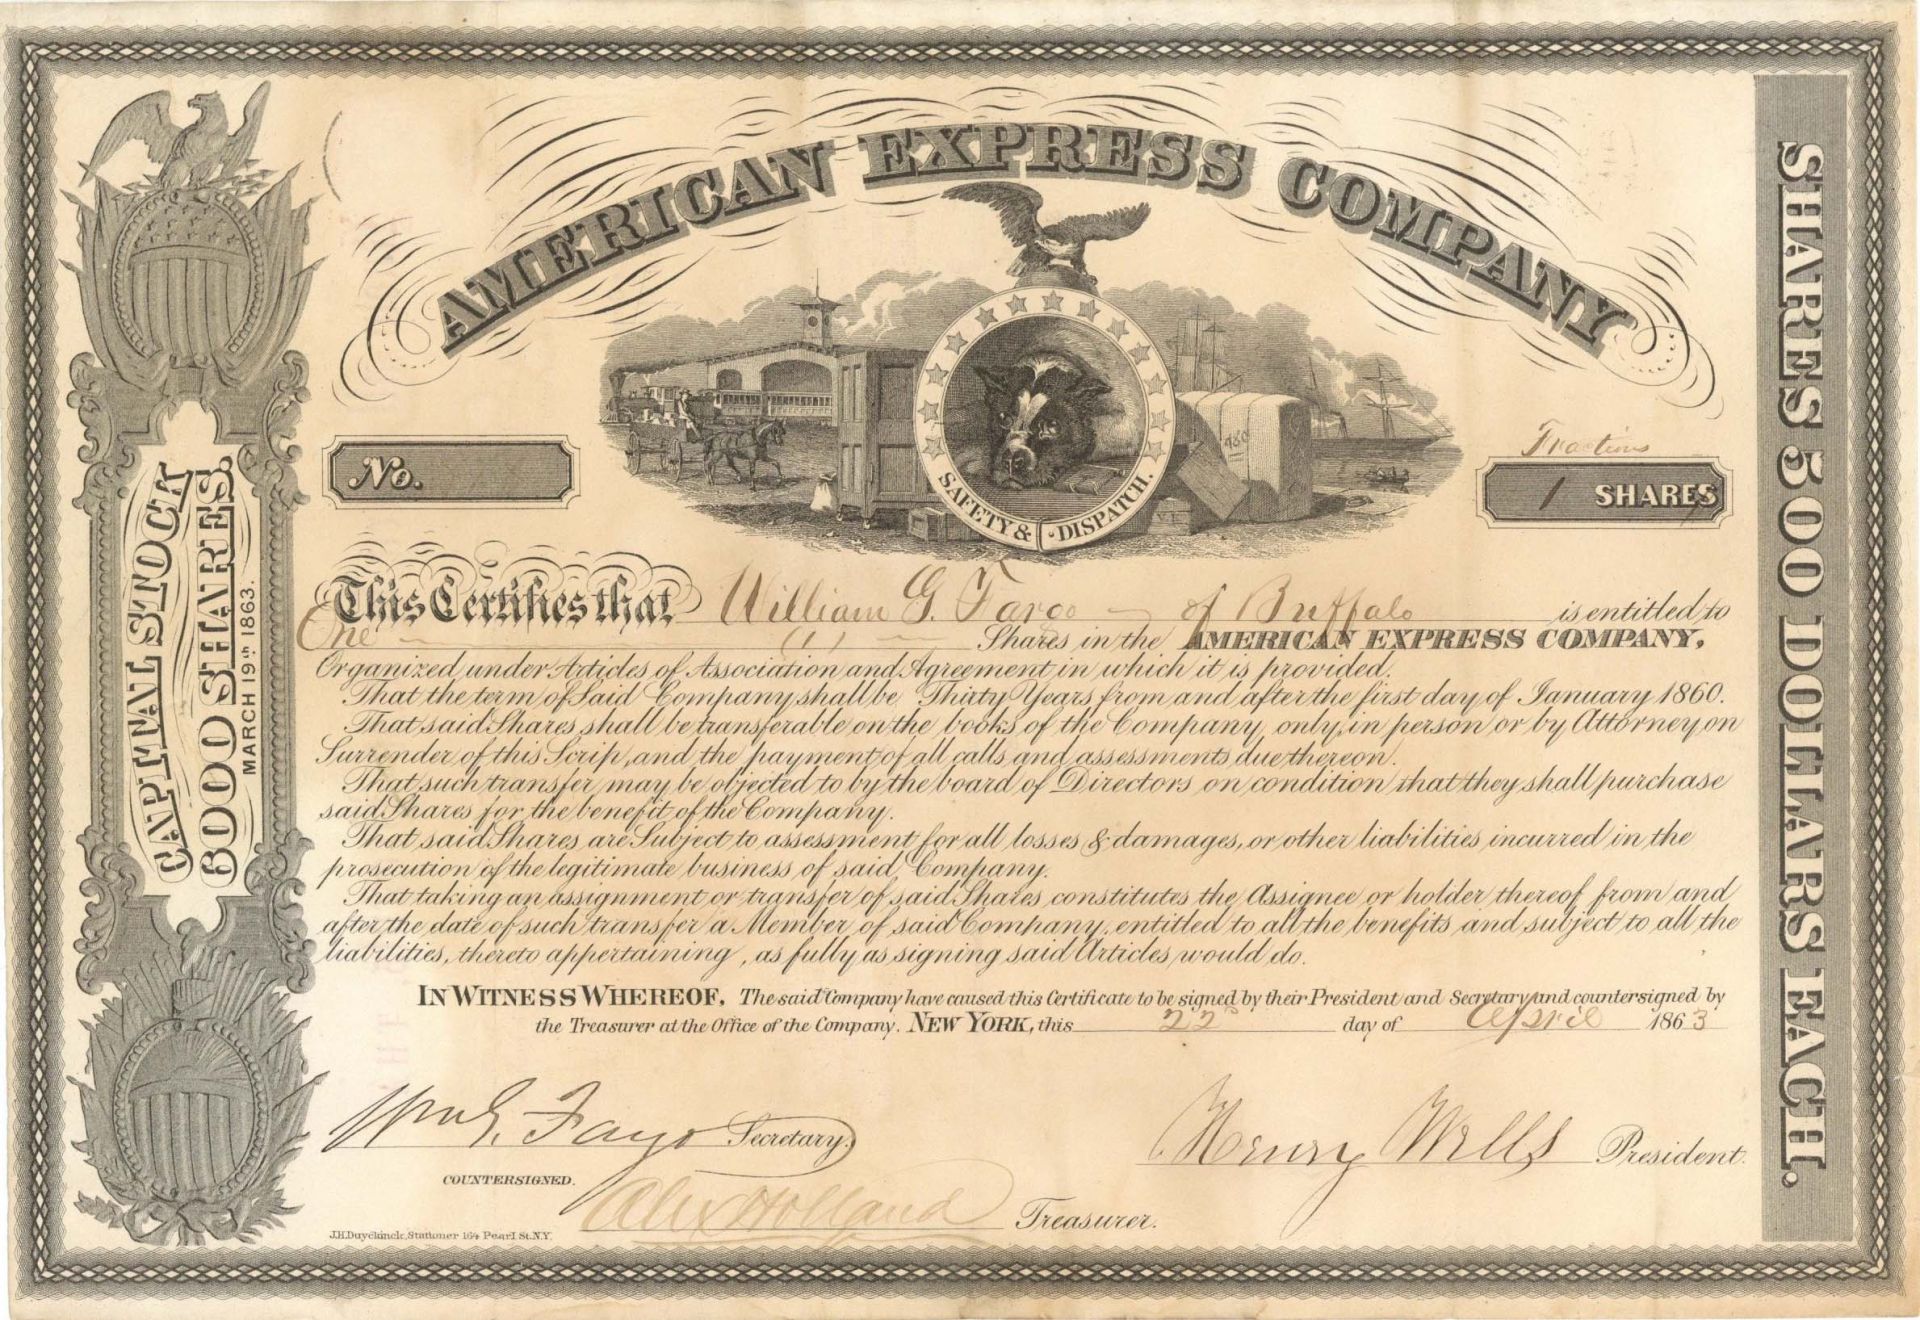 AMERICAN EXPRESS COMPANY
CAPITAL STOCK
6000 SHARES.
MARCH 19th 1863.
SHARES 500 DOLLARS EACH.
980
SAFETY & DISPATCH.
No.
Fractions
1 SHARES
This Certifies that William G. Fargo of Buffalo is entitled to
One (1) Shares in the AMERICAN EXPRESS COMPANY,
Organized under Articles of Association and Agreement in which it is provided.
That the term of Said Company shall be Thirty Years from and after the first day of January 1860.
That said Shares shall be transferable on the books of the Company, only, in person or by Attorney on
Surrender of this Scrip, and the payment of all calls and assessments due thereon.
That such transfer may be objected to by the board of Directors on condition that they shall purchase
said Shares for the benefit of the Company.
That said Shares are Subject to assessment for all losses & damages, or other liabilities incurred in the
prosecution of the legitimate business of said Company.
That taking an assignment or transfer of said Shares constitutes the Assignee or holder thereof from and
after the date of such transfer a Member of said Company, entitled to all the benefits and subject to all the
liabilities, thereto appertaining, as fully as signing said Articles would do.
IN WITNESS WHEREOF, The said Company have caused this Certificate to be signed by their President and Secretary and countersigned by
the Treasurer at the Office of the Company. NEW YORK, this 22d day of April 1863
Wm G. Fargo Secretary.
Henry Wells President.
COUNTERSIGNED.
Alex Holland Treasurer.
J.H.Duyckinck, Stationer 164 Pearl St. N.Y.